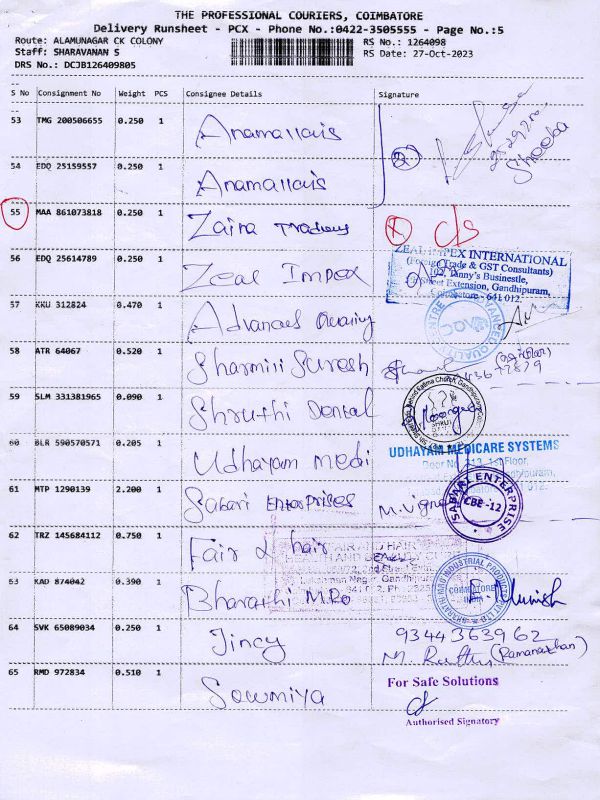 THE PROFESSIONAL COURIERS, COIMBATORE
Delivery Runsheet - PCX - Phone No.:0422-3505555 - Page No.:5
Route: ALAMUNAGAR CK COLONY
RS No.: 1264098
Staff: SHARAVANAN S
RS Date: 27-Oct-2023
DRS No.: DCJB126409805
S No Consignment No Weight PCS Consignee Details Signature
53 TMG 200506655 0.250 1 Anamallais
Shooba
54 EDQ 25159557 0.250 1 Anamallais
55 MAA 861073818 0.250 1 Zaina Traders
56 EDQ 25614789 0.250 1 Zeal Impex
ZEAL IMPEX INTERNATIONAL
(Foreign Trade & GST Consultants)
Street Extension, Gandhipuram,
Coimbatore - 641 012.
57 KKU 312824 0.470 1 Advanced Quality
58 ATR 64067 0.520 1 Sharmili Suresh
59 SLM 331381965 0.090 1 Shruthi Dental
60 BLR 590570571 0.205 1 Udhayam medi
UDHAYAM MEDICARE SYSTEMS
61 MTP 1290139 2.200 1 Sabari Enterprises
SABARI ENTERPRISE
CBE-12
62 TRZ 145684112 0.750 1 Fair & hair
63 KAD 874042 0.390 1 Bharathi M.Pro
COIMBATORE
INDIA
64 SVK 65089034 0.250 1 Jincy
9344363962
(Ramanathan)
65 RMD 972834 0.510 1 Sowmiya
For Safe Solutions
Authorised Signatory